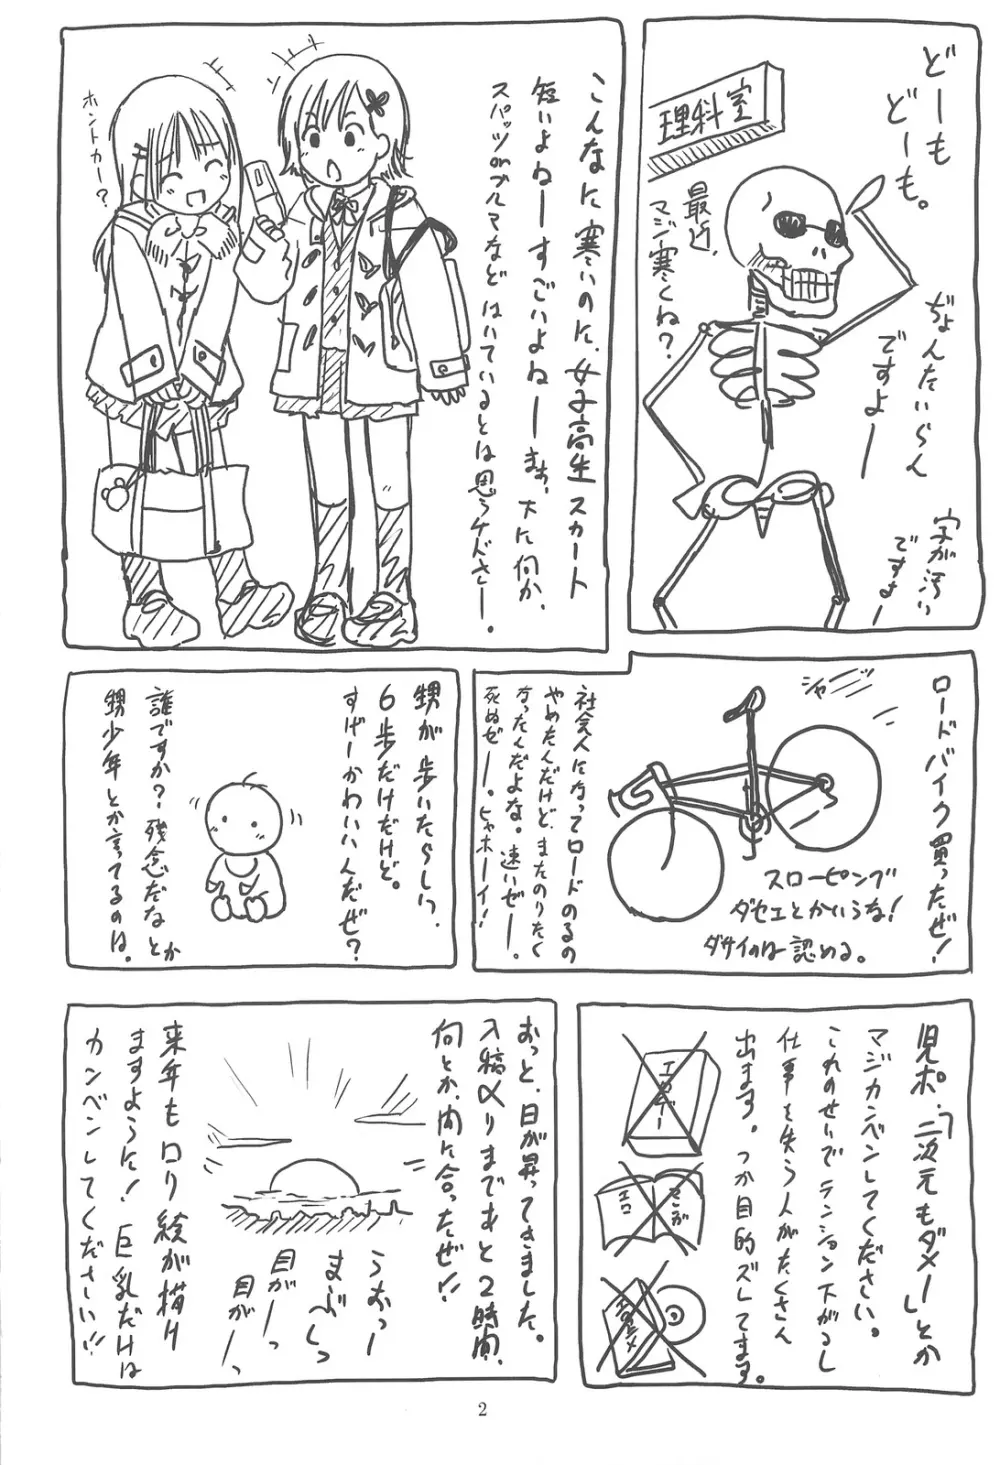 どーも
どーも。
ぢょんたいらん
ですよー
字が汚い
ですよー
理科室
最近、
マジ寒くね?
こんなに寒いのに、女子高生スカート
短いよねーすごいよねーまぁ、下に何か、
スパッツorブルマなどはいているとは思うケドさー。
ホントカー?
ロードバイク買ったぜ!
シャーッ
スローピング
ダセェとかいうな!
ダサイのは認める。
社会人になってロードのるの
やめたんだけど、またのりたく
なったんだよな。速いぜー。
死ぬぜー。ヒャホーイ!
甥が歩いたらしい。
6歩だけだけど。
すげーかわいいんだぜ?
誰ですか?残念だなとか
甥少年とか言ってるのは。
児ポ、「二次元もダメー」とか
マジカンベンしてください。
これのせいでテンション下がるし
仕事を失う人がたくさん
出ます。つか目的ズレてます。
エロゲー
エロ
まんが
エロアニメ
おっと、日が昇ってきました。
入稿〆切りまであと2時間、
何とか、間に合ったぜ!!
うおっー
まぶしっ
目がーっ
目がーっ
来年もロリ絵が描け
ますように!巨乳だけは
カンベンしてくださーい!!
2